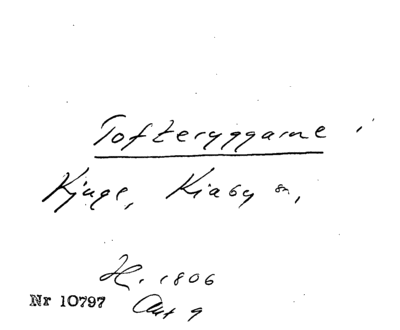 Tofteryggarne i
Kjuge, Kiaby sn,
H. 1806
Nr 10797
Akt 9